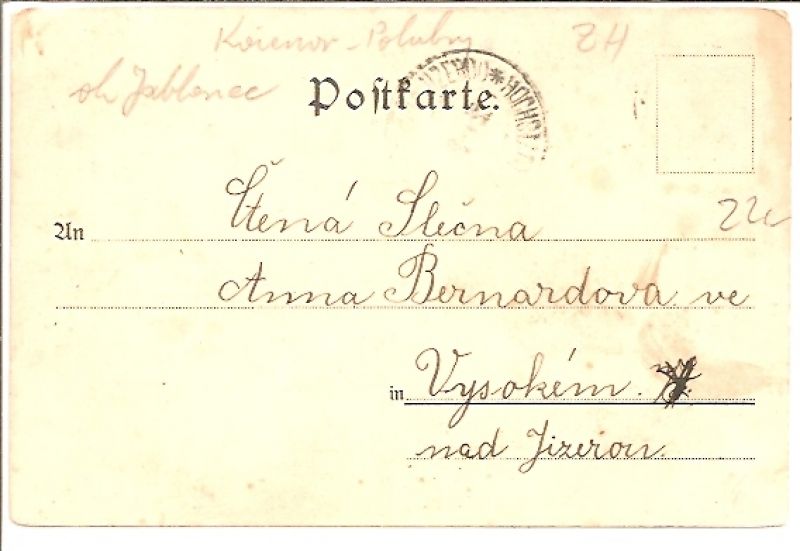 Kořenov-Polubny ZH
ok Jablonec
Postkarte.
HOCHS
22
An Ctěná Slečna
Anna Bernardova ve
in Vysokém.
nad Jizerou.